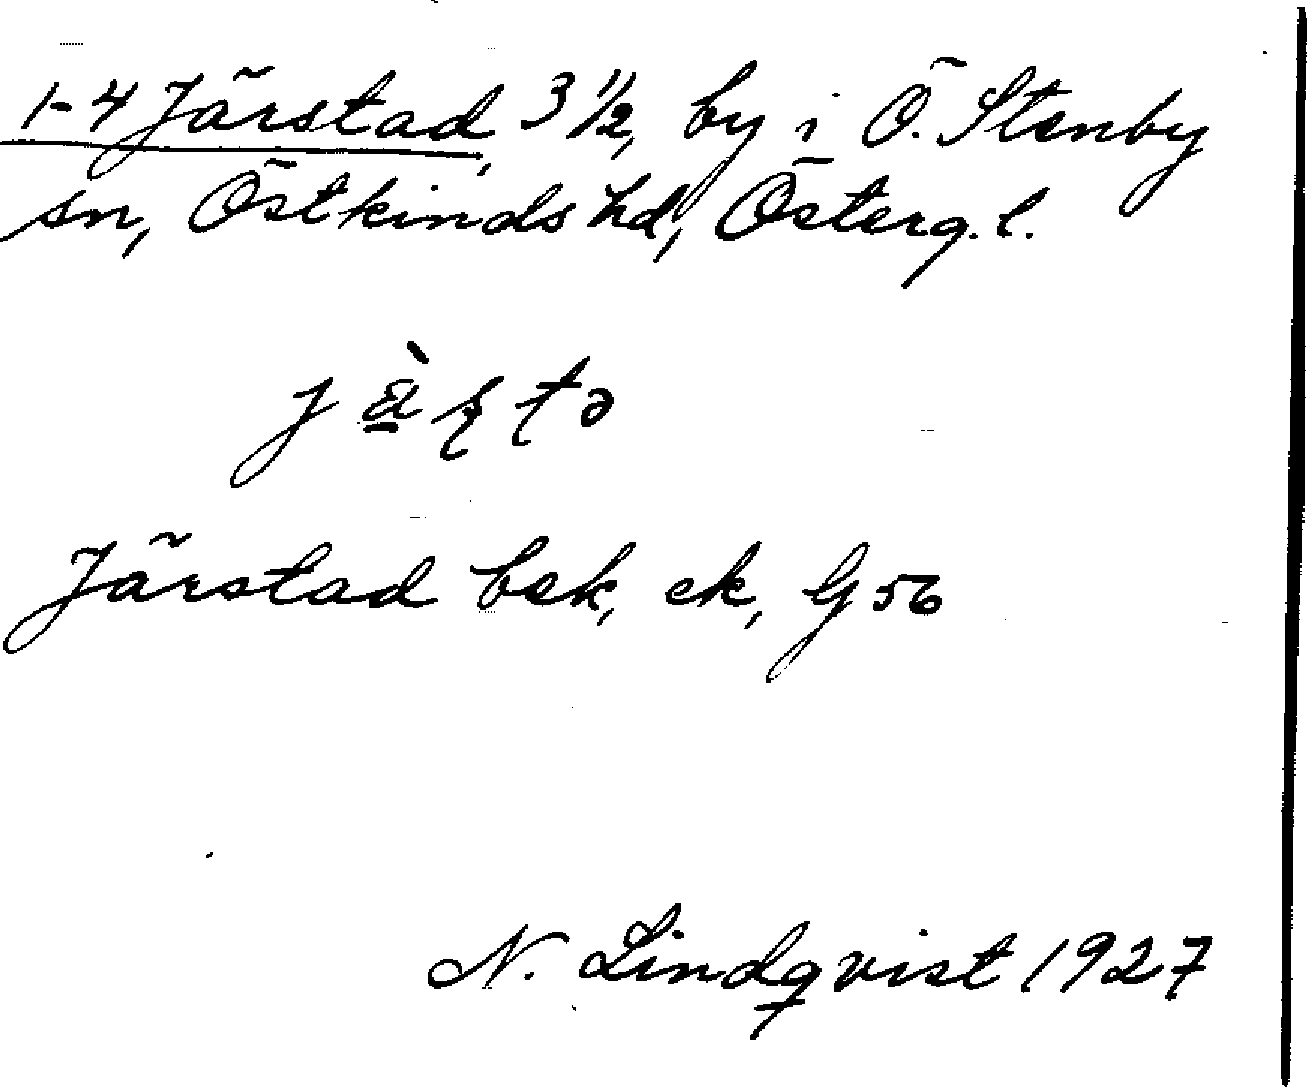 1-4 Järstad, 3 1/2, by i Ö. Stenby
sn, Östkinds hd, Österg. l.
Järstad bek, ek, G 56
N. Lindqvist 1927